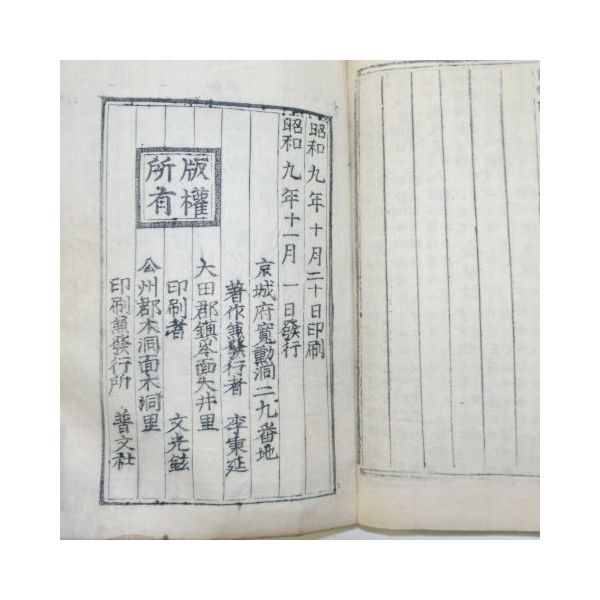 昭和九年十月二十日印刷
昭和九年十一月一日發行
京城府寬勳洞二九番地
著作兼發行者 李東延
大田郡鎮岑面大井里
印刷者 文光鉉
公州郡木洞面木洞里
印刷兼發行所 普文社
版權
所有